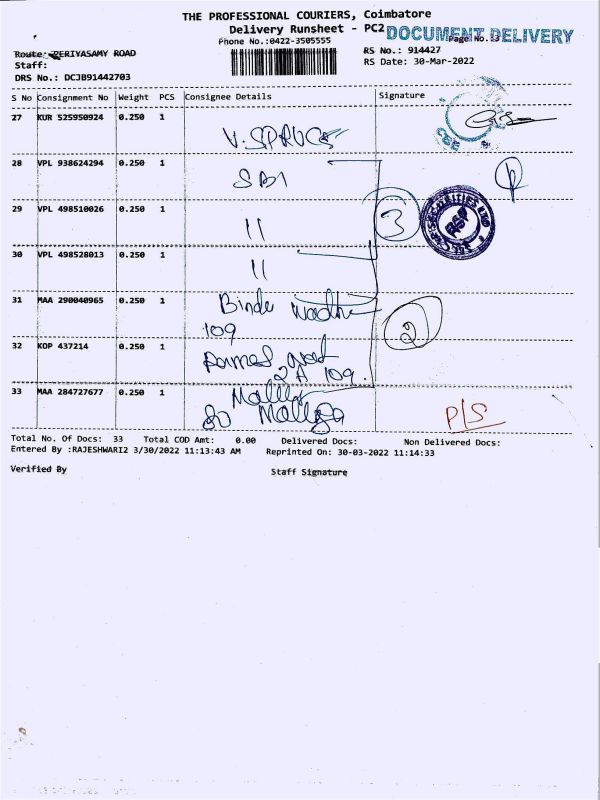 THE PROFESSIONAL COURIERS, Coimbatore
Delivery Runsheet - PC2
DOCUMENT DELIVERY
Phone No.:0422-3505555
Page No.:3
Route: PERIYASAMY ROAD
RS No.: 914427
Staff:
RS Date: 30-Mar-2022
DRS No.: DCJB91442703
S No Consignment No Weight PCS Consignee Details Signature
27 KUR 525950924 0.250 1
V. SPRUCE
28 VPL 938624294 0.250 1
SBI
29 VPL 498510026 0.250 1
11
3
RSP
30 VPL 498528013 0.250 1
11
31 MAA 290040965 0.250 1
Bindu
109
2
32 KOP 437214 0.250 1
2A 109.
33 MAA 284727677 0.250 1
P/S
Total No. Of Docs: 33 Total COD Amt: 0.00 Delivered Docs: Non Delivered Docs:
Entered By :RAJESHWARI2 3/30/2022 11:13:43 AM Reprinted On: 30-03-2022 11:14:33
Verified By
Staff Signature